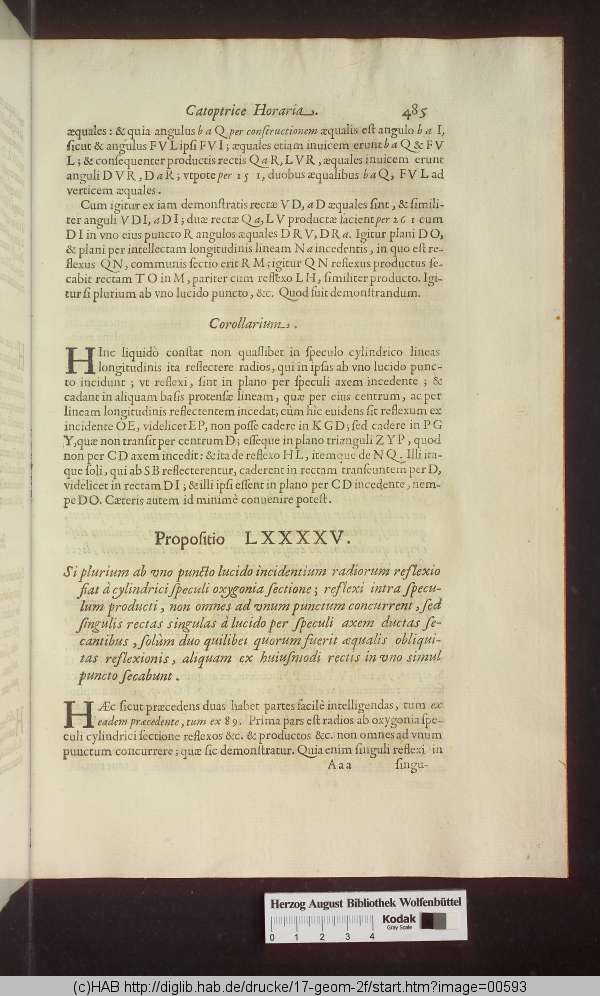 Catoptrice Horaria. 485
æquales: & quia angulus b a Q per constructionem æqualis est angulo b a I,
sicut & angulus FVL ipsi FVI; æquales etiam inuicem erunt b a Q & FV
L; & consequenter productis rectis Q a R, LVR, æquales inuicem erunt
anguli DVR, D a R; vtpote per 151, duobus æqualibus b a Q, FVL ad
verticem æquales.
Cum igitur ex iam demonstratis rectæ VD, a D æquales sint, & simili-
ter anguli VDI, a DI; duæ rectæ Q a, LV productæ facient per 261 cum
DI in vno eius puncto R angulos æquales DRV, DR a. Igitur plani DO,
& plani per intellectam longitudinis lineam N a incedentis, in quo est re-
flexus QN, communis sectio erit RM; igitur QN reflexus productus se-
cabit rectam TO in M, pariter cum reflexo LH, similiter producto. Igi-
tur si plurium ab vno lucido puncto, &c. Quod fuit demonstrandum.
Corollarium.
HInc liquidò constat non quaslibet in speculo cylindrico lineas
longitudinis ita reflectere radios, qui in ipsas ab vno lucido punc-
to incidunt; vt reflexi, sint in plano per speculi axem incedente; &
cadant in aliquam basis protensæ lineam, quæ per eius centrum, ac per
lineam longitudinis reflectentem incedat; cùm hic euidens sit reflexum ex
incidente OE, videlicet EP, non posse cadere in KGD; sed cadere in PG
Y, quæ non transit per centrum D; esseque in plano trianguli ZYP, quod
non per CD axem incedit: & ita de reflexo HL, itemque de NQ. Illi ita-
que soli, qui ab SB reflecterentur, caderent in rectam transeuntem per D,
videlicet in rectam DI; & illi ipsi essent in plano per CD incedente, nem-
pe DO. Cæteris autem id minimè conuenire potest.
Propositio LXXXXV.
Si plurium ab vno puncto lucido incidentium radiorum reflexio
fiat à cylindrici speculi oxygonia sectione; reflexi intra specu-
lum producti, non omnes ad vnum punctum concurrent, sed
singulis rectas singulas à lucido per speculi axem ductas se-
cantibus, solùm duo quilibet quorum fuerit æqualis obliqui-
tas reflexionis, aliquam ex huiusmodi rectis in vno simul
puncto secabunt.
HÆc sicut præcedens duas habet partes facilè intelligendas, tum ex
eadem præcedente, tum ex 89. Prima pars est radios ab oxygonia spe-
culi cylindrici sectione reflexos &c. & productos &c. non omnes ad vnum
punctum concurrere; quæ sic demonstratur. Quia enim singuli reflexi in
Aaa singu-
Herzog August Bibliothek Wolfenbüttel
Kodak
Gray Scale
0 1 2 3 4
(c)HAB http://diglib.hab.de/drucke/17-geom-2f/start.htm?image=00593